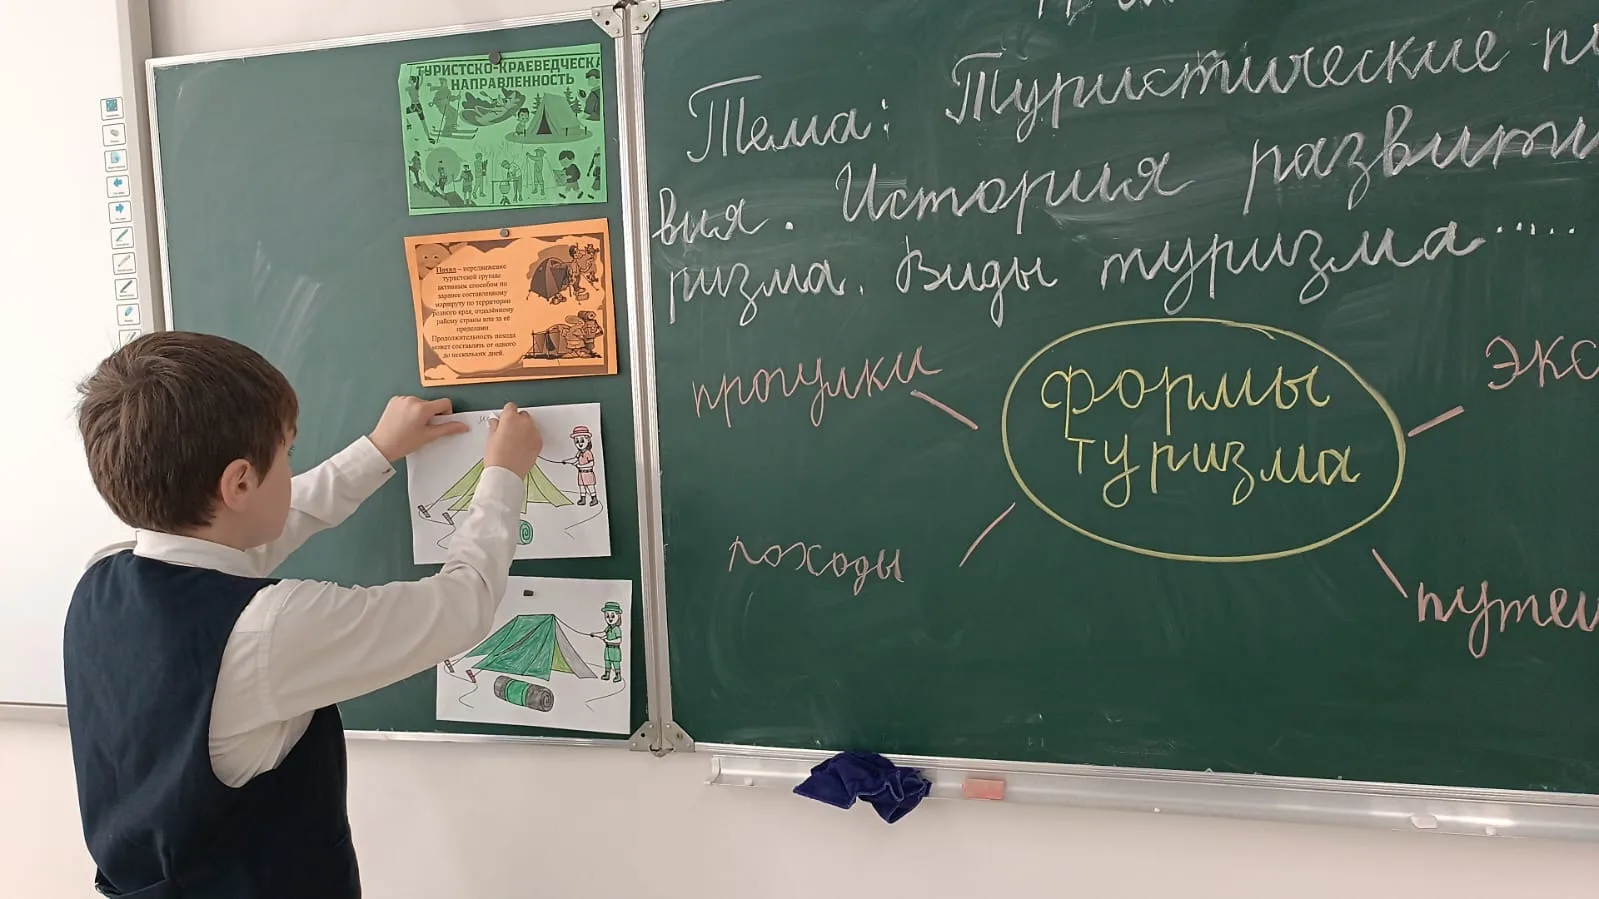 ТУРИСТСКО-КРАЕВЕДЧЕСКА
НАПРАВЛЕННОСТЬ
Поход – передвижение
туристской группы
активным способом по
заранее составленному
маршруту по территории
родного края, отдалённому
району страны или за её
пределами.
Продолжительность похода
может составлять от одного
до нескольких дней.
Тема: Туристические п
вия. История развити
ризма. Виды туризма.....
прогулки
формы
туризма
экс
походы
путеш